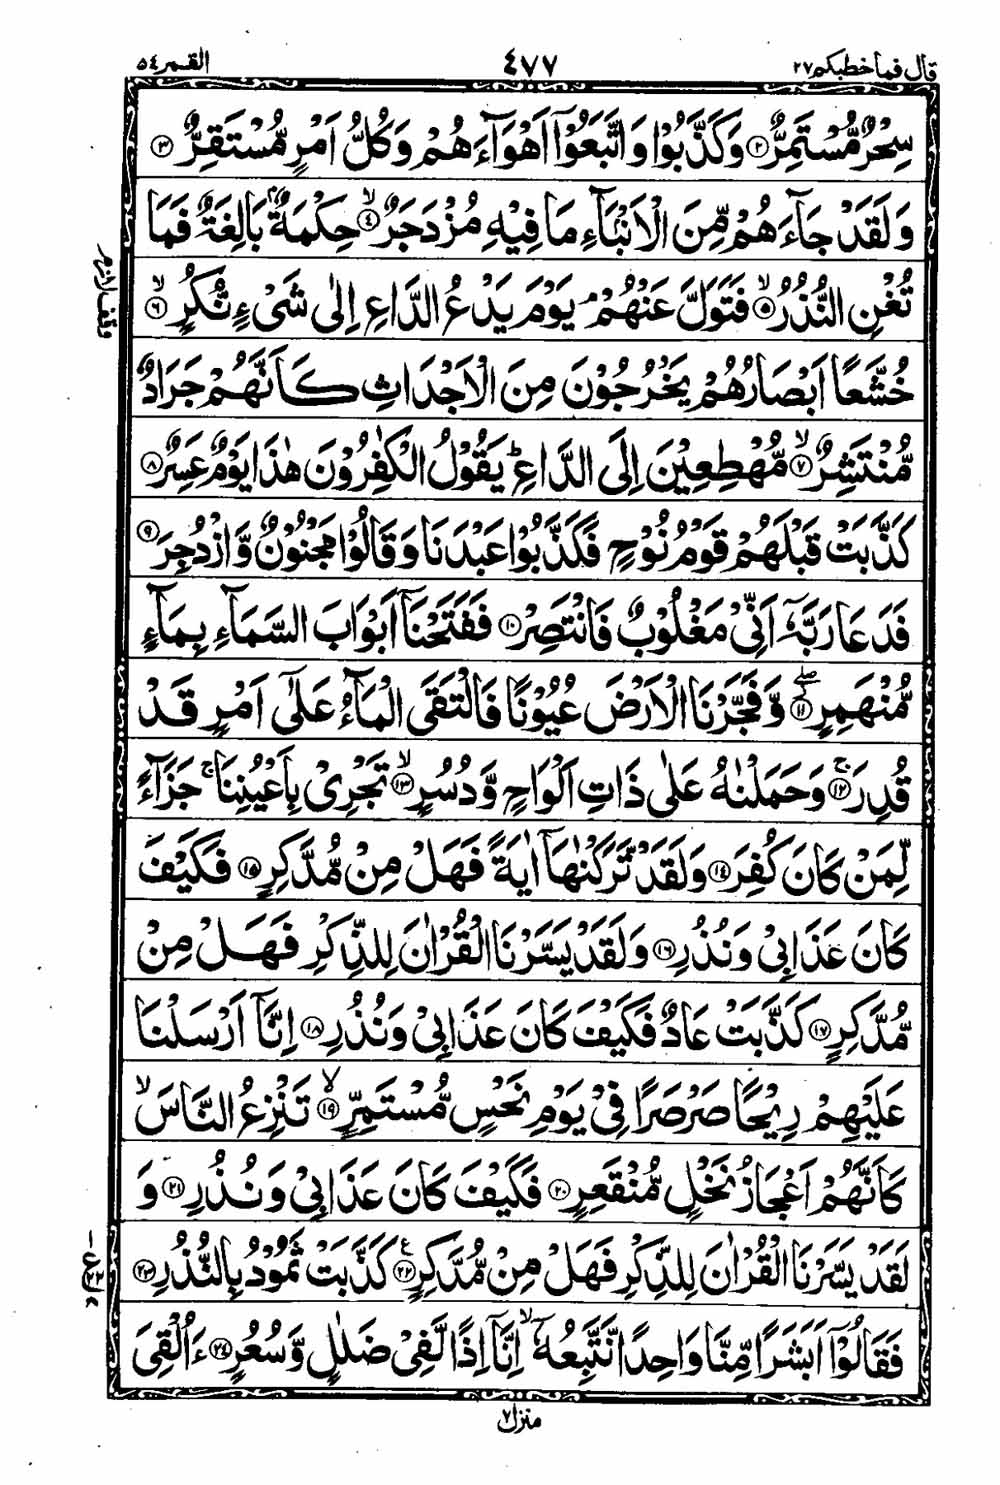 قال فما خطبكم ٢٧ ٤٧٧ القمر ٥٤
سِحْرٌ مُّسْتَمِرٌّ ﴿٢﴾ وَكَذَّبُوْا وَاتَّبَعُوْٓا اَهْوَآءَهُمْ وَكُلُّ اَمْرٍ مُّسْتَقِرٌّ ﴿٣﴾
وَلَقَدْ جَآءَهُمْ مِّنَ الْاَنْۢبَآءِ مَا فِيْهِ مُزْدَجَرٌ ﴿٤﴾ۙ حِكْمَةٌۢ بَالِغَةٌ فَمَا
تُغْنِ النُّذُرُ ﴿٥﴾ۙ فَتَوَلَّ عَنْهُمْۘ يَوْمَ يَدْعُ الدَّاعِ اِلٰى شَىْءٍ نُّكُرٍ ﴿٦﴾ۙ
خُشَّعًا اَبْصَارُهُمْ يَخْرُجُوْنَ مِنَ الْاَجْدَاثِ كَاَنَّهُمْ جَرَادٌ
مُّنْتَشِرٌ ﴿٧﴾ۙ مُّهْطِعِيْنَ اِلَى الدَّاعِؕ يَقُوْلُ الْكٰفِرُوْنَ هٰذَا يَوْمٌ عَسِرٌ ﴿٨﴾
كَذَّبَتْ قَبْلَهُمْ قَوْمُ نُوْحٍ فَكَذَّبُوْا عَبْدَنَا وَقَالُوْا مَجْنُوْنٌ وَّازْدُجِرَ ﴿٩﴾
فَدَعَا رَبَّهٗٓ اَنِّىْ مَغْلُوْبٌ فَانْتَصِرْ ﴿١٠﴾ فَفَتَحْنَآ اَبْوَابَ السَّمَآءِ بِمَآءٍ
مُّنْهَمِرٍ ﴿١١﴾ۖ وَّفَجَّرْنَا الْاَرْضَ عُيُوْنًا فَالْتَقَى الْمَآءُ عَلٰٓى اَمْرٍ قَدْ
قُدِرَ ﴿١٢﴾ۚ وَحَمَلْنٰهُ عَلٰى ذَاتِ اَلْوَاحٍ وَّدُسُرٍ ﴿١٣﴾ۙ تَجْرِىْ بِاَعْيُنِنَاۚ جَزَآءً
لِّمَنْ كَانَ كُفِرَ ﴿١٤﴾ وَلَقَدْ تَّرَكْنٰهَآ اٰيَةً فَهَلْ مِنْ مُّدَّكِرٍ ﴿١٥﴾ فَكَيْفَ
كَانَ عَذَابِىْ وَنُذُرِ ﴿١٦﴾ وَلَقَدْ يَسَّرْنَا الْقُرْاٰنَ لِلذِّكْرِ فَهَلْ مِنْ
مُّدَّكِرٍ ﴿١٧﴾ كَذَّبَتْ عَادٌ فَكَيْفَ كَانَ عَذَابِىْ وَنُذُرِ ﴿١٨﴾ اِنَّآ اَرْسَلْنَا
عَلَيْهِمْ رِيْحًا صَرْصَرًا فِىْ يَوْمِ نَحْسٍ مُّسْتَمِرٍّ ﴿١٩﴾ۙ تَنْزِعُ النَّاسَۙ
كَاَنَّهُمْ اَعْجَازُ نَخْلٍ مُّنْقَعِرٍ ﴿٢٠﴾ فَكَيْفَ كَانَ عَذَابِىْ وَنُذُرِ ﴿٢١﴾ وَ
لَقَدْ يَسَّرْنَا الْقُرْاٰنَ لِلذِّكْرِ فَهَلْ مِنْ مُّدَّكِرٍ ﴿٢٢﴾ كَذَّبَتْ ثَمُوْدُ بِالنُّذُرِ ﴿٢٣﴾
فَقَالُوْٓا اَبَشَرًا مِّنَّا وَاحِدًا نَّتَّبِعُهٗٓۙ اِنَّآ اِذًا لَّفِىْ ضَلٰلٍ وَّسُعُرٍ ﴿٢٤﴾ ءَاُلْقِىَ
وقف لازم
منزل ٧